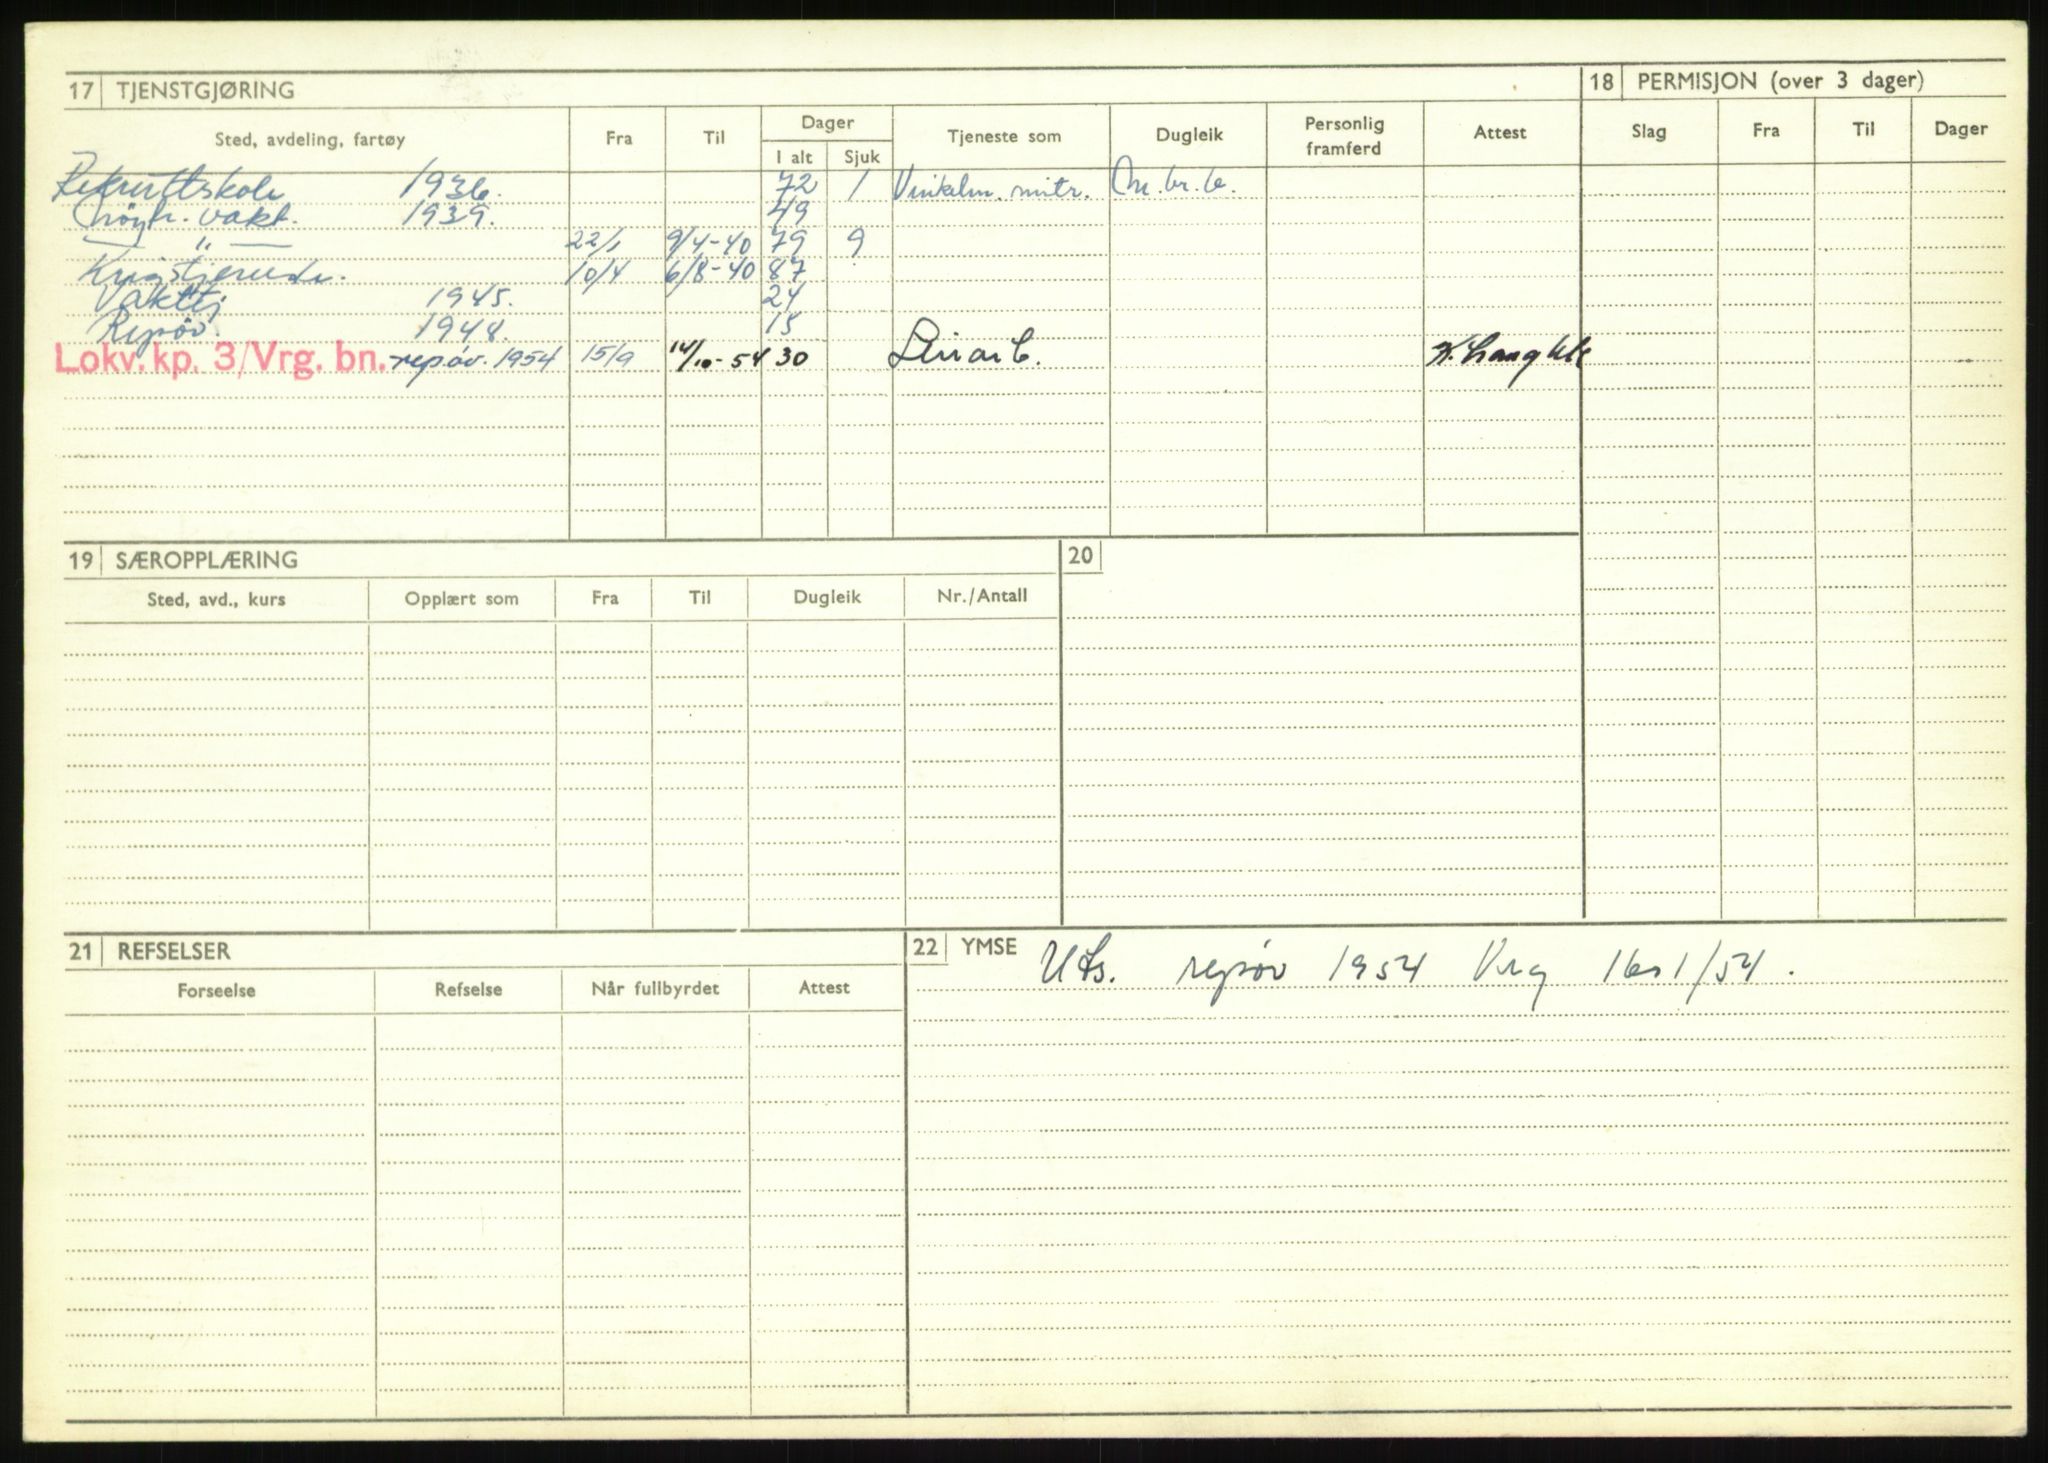 17 TJENSTGJØRING
Sted, avdeling, fartøy Fra Til Dager I alt Sjuk Tjeneste som Dugleik Personlig framferd Attest
Rekruttskole 1936. 72 1 Vinkelm. mitr. M.br.b.
Nøytr. vakt. 1939. 49
— " — 22/1 9/4-40 79 9
Krigstjeneste. 10/4 6/8-40 87
Vakttj 1945. 24
Repøv. 1948. 15
Lokv. kp. 3/Vrg. bn. repøv. 1954 15/9 14/10-54 30
18 PERMISJON (over 3 dager)
Slag Fra Til Dager
19 SÆROPPLÆRING
Sted, avd., kurs Opplært som Fra Til Dugleik Nr./Antall
20
21 REFSELSER
Forseelse Refselse Når fullbyrdet Attest
22 YMSE
Uts. repøv 1954 Vrg /54.